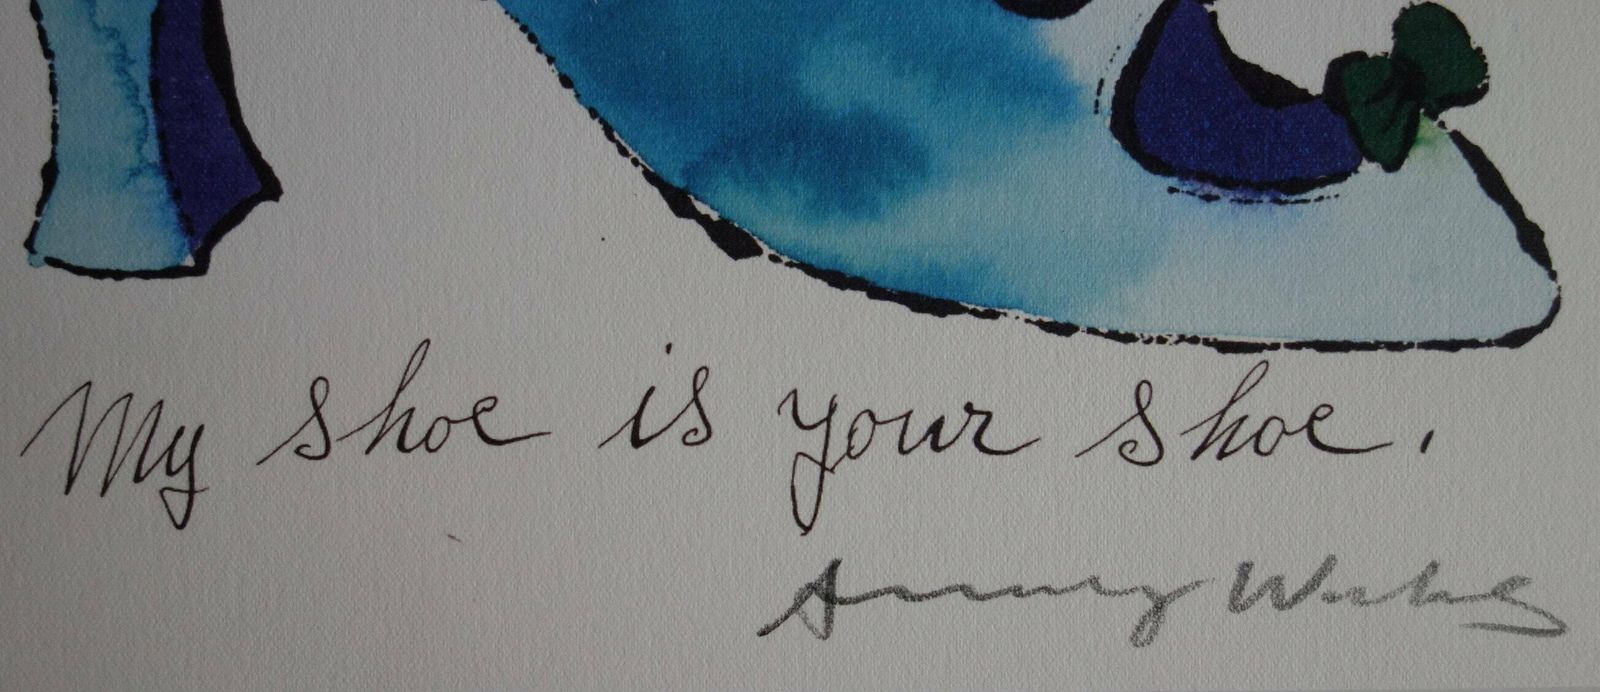 My shoe is your shoe.
Andy Warhol